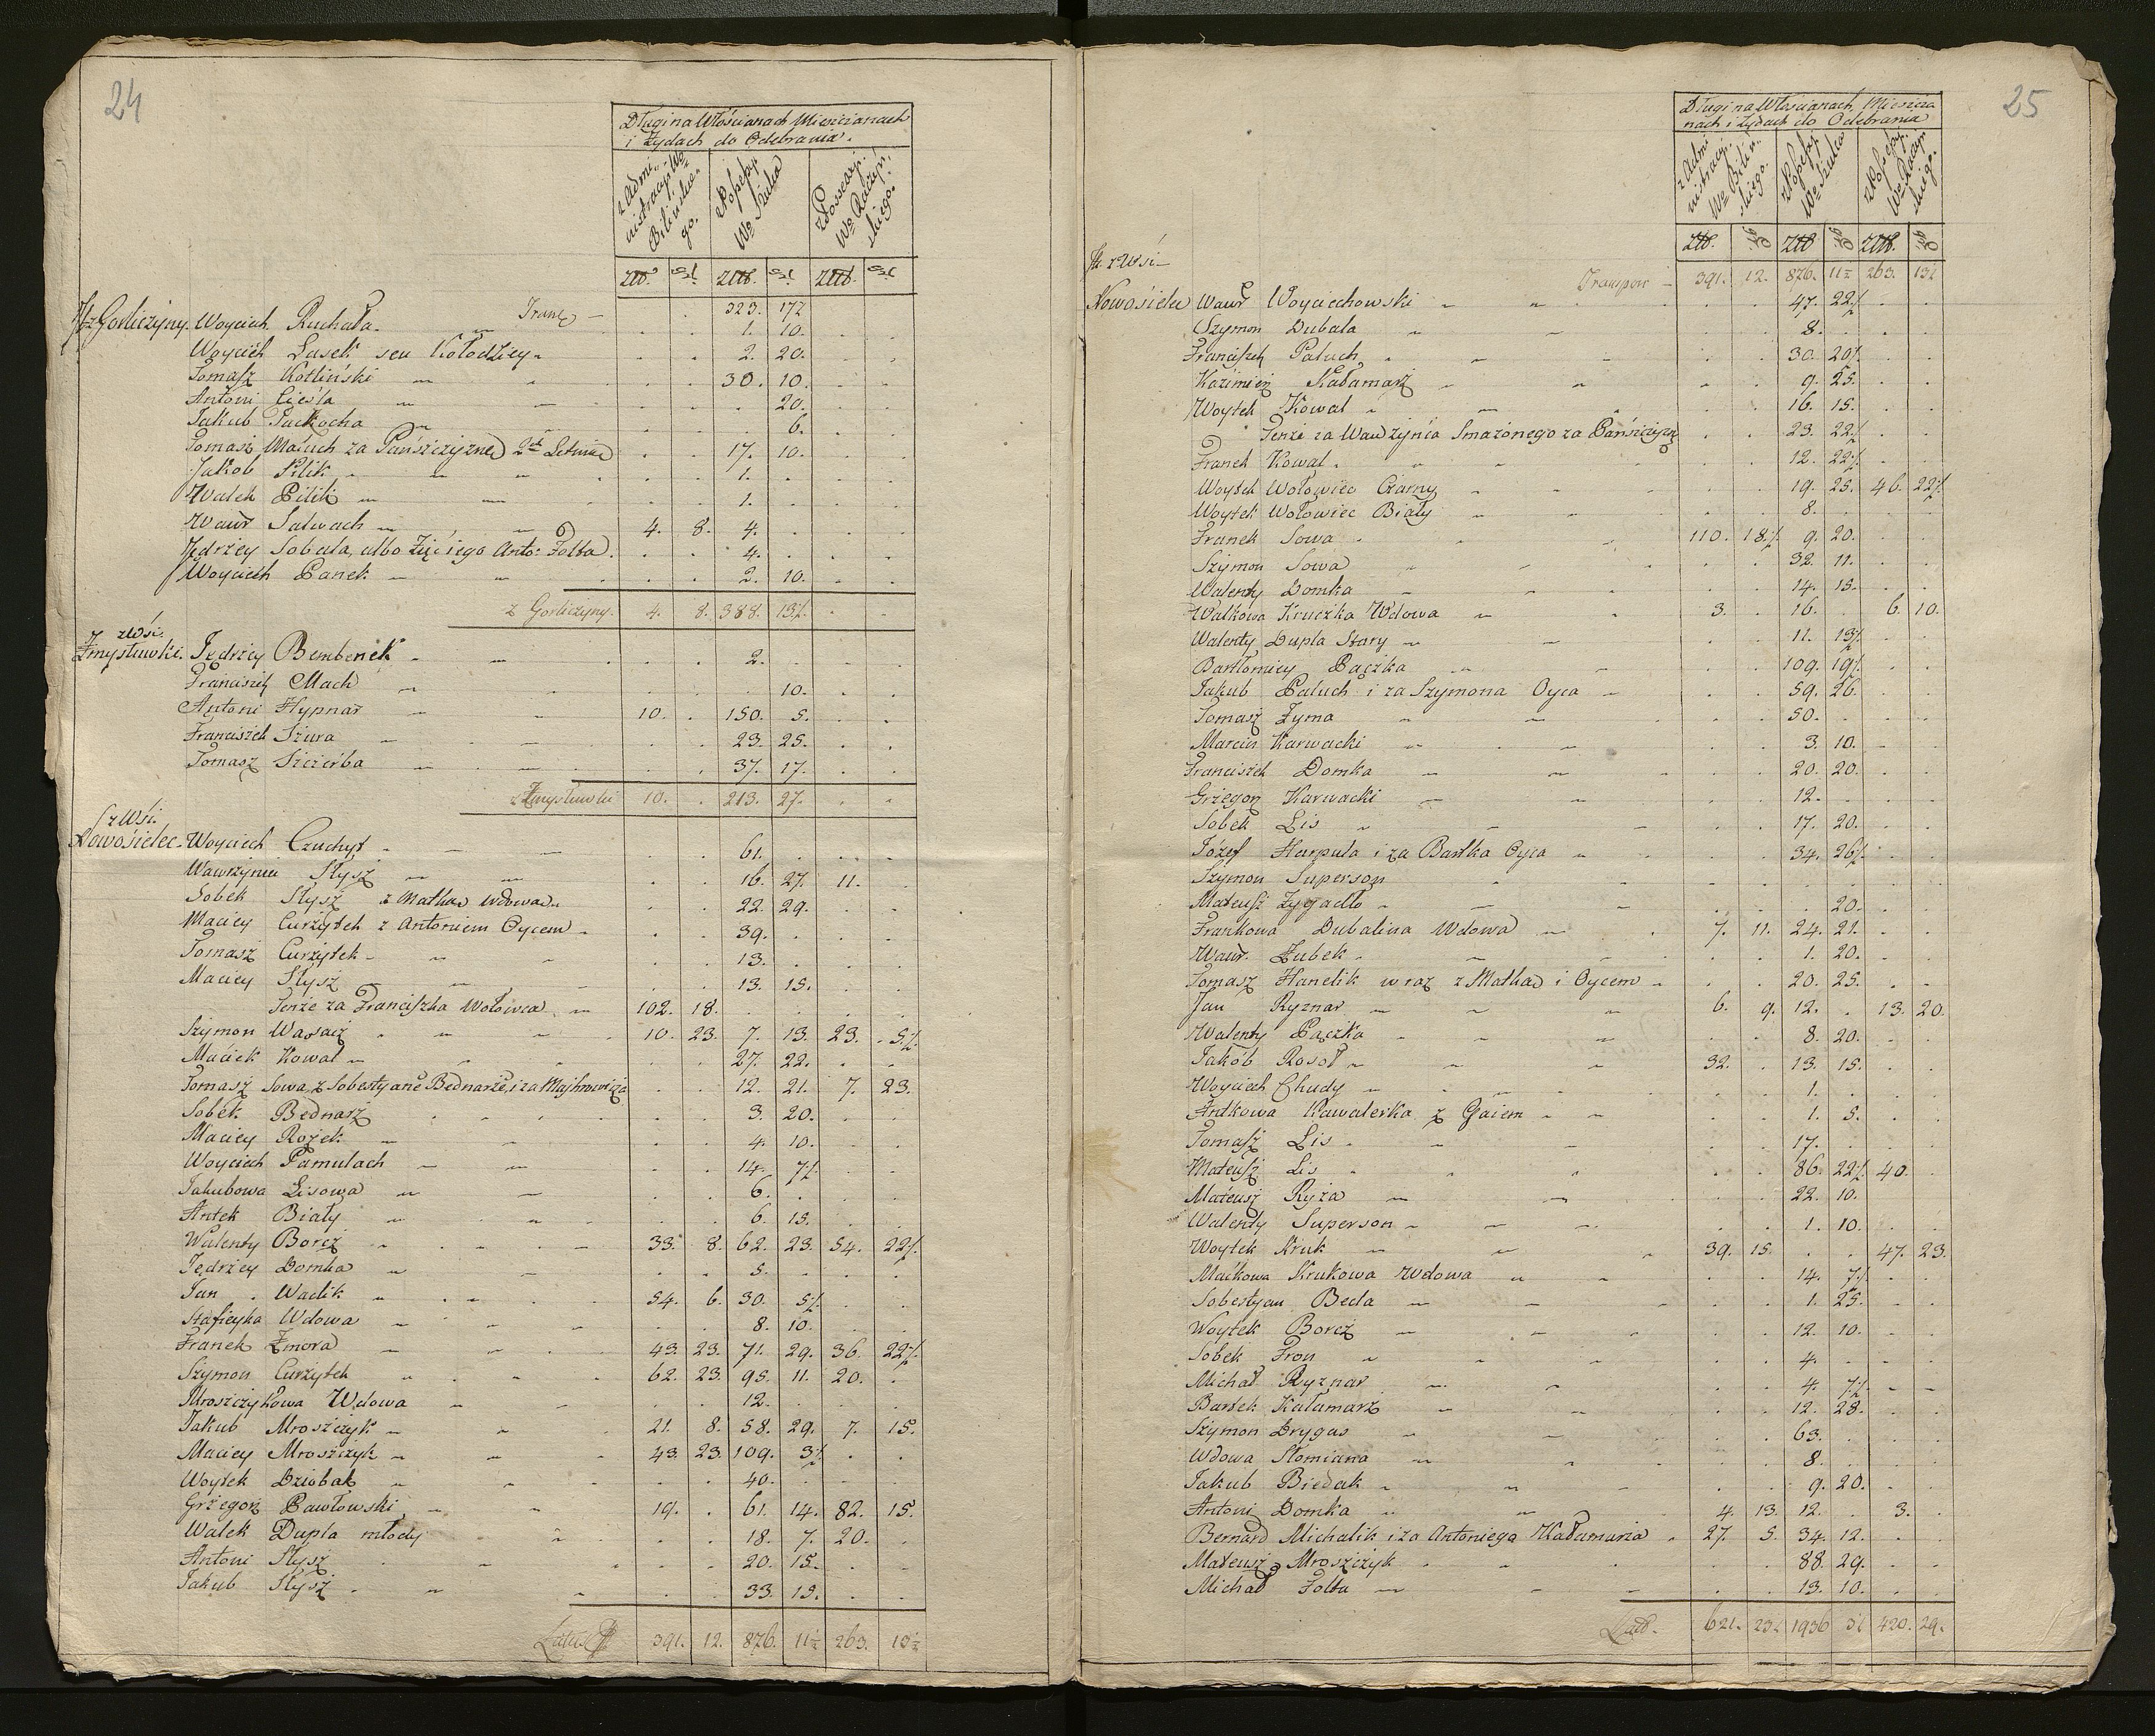 24
Długi na Włościanach Mieszczanach
i Żydach do Odebrania.
z Admi-
nistracyi Wo
Bilińskie-
go.
z Possessyi
Wo Szulca
z Possessyi
Wo Raczyń-
skiego.
Złt. gr. Złt. gr. Złt. gr.
Transp 323. 17½
z Gorliczyny. Woyciech Ruchała 1. 10.
Woyciech Lasek seu Kołodziey 2. 20.
Tomasz Kotliński 30. 10.
Antoni Cieśla 20.
Jakub Packocha 6.
Tomasz Maruch za Pańszczyznę 2ch Letnią 17. 10.
Jakob Pilik 1.
Walek Pilik 1.
Wawr Salwach 4. 8. 4.
Jędrzey Sobala, albo Zięć iego Anto: Folta. 4.
Woyciech Panek 2. 10.
z Gorliczyny. 4. 8. 388. 13½.
z Wsi.
Zmysłówki. Jędrzey Bembenek 2.
Franciszek Mach 10.
Antoni Hypnar 10. 150. 5.
Franciszek Szura 23. 25.
Tomasz Szczerba 37. 17.
z Zmysłówki 10. 213. 27.
z Wsi.
Nowosielec. Woyciech Czuchyt 61.
Wawrzyniec Słysz 16. 27. 11.
Sobek Słysz z Matką Wdową 22. 29.
Maciey Curzytek z Antoniem Oycem 39.
Tomasz Curzytek 13.
Maciey Słysz 13. 15.
Tenże za Franciszka Wołowca 102. 18.
Szymon Wasacz 10. 23. 7. 13. 23. 5½.
Maciek Kowal 27. 22.
Tomasz Sowa, z Sobestyane Bednarze, i za Maykowicza 12. 21. 7. 23.
Sobek Bednasz 3. 20.
Maciey Rożek 4. 10.
Woyciech Pamulach 14. 7½.
Jakubowa Lisowa 6.
Antek Biały 6. 15.
Walenty Borcz 33. 8. 62. 23. 54. 22½.
Jędrzey Domka 5.
Jan Waclik 54. 6. 30. 5½.
Stafieyka Wdowa 8. 10.
Franek Zmora 43. 23. 71. 29. 36. 22½.
Szymon Curzytek 62. 23. 95. 11. 20.
Mroszczykowa Wdowa 12.
Jakub Mroszczyk 21. 8. 58. 29. 7. 15.
Maciey Mroszczyk 43. 23. 109. 3½.
Woytek Dziobak 40.
Grzegorz Pawłowski 19. 61. 14. 82. 15.
Walek Dupla młody 18. 7. 20.
Antoni Słysz 20. 15.
Jakub Słysz 33. 15.
Latus 391. 12. 876. 11½ 263. 13½
25
Długi na Włościanach, Mieszcza
nach i Żydach do Odebrania
z Admi-
nistracyi
Wo Biliń-
skiego.
z Possessyi
Wo Szulca
z Possessyi
Wo Raczyń
skiego.
Złt. gr. Złt. gr. Złt. gr.
z Wsi
Transport 391. 12. 876. 11½ 263. 13½
Nowosielec Wawr Woyciechowski 47. 22½.
Szymon Dubala 8.
Franciszek Paluch 30. 20½.
Kazimierz Kałamarz 9. 25.
Woytek Kowal 16. 15.
Tenże za Wawrzyńca Smażonego za Pańszczyznę 23. 22½.
Franek Kowal 12. 22½.
Woytek Wołowiec Czarny 19. 25. 46. 22½
Woytek Wołowiec Biały 8.
Franek Sowa 110. 18½. 9. 20.
Szymon Sowa 32. 11.
Walenty Domka 14. 15.
Walkowa Kruczka Wdowa 3. 16. 6. 10.
Walenty Dupla Stary 11. 13½.
Bartłomiey Pączka 109. 19½.
Jakub Paluch i za Szymona Oyca 59. 26.
Tomasz Zyma 50.
Marcin Karwacki 3. 10.
Franciszek Domka 20. 20.
Grzegorz Karwacki 12.
Sobek Lis 17. 20.
Józef Harpula i za Bartka Oyca 34. 26½.
Szymon Superson
Mateusz Zygadło 20.
Frankowa Dubalina Wdowa 7. 11. 24. 21.
Wawr. Zubek 1. 20.
Tomasz Hanelik wraz z Matką i Oycem 20. 25.
Jan Ryznar 6. 9. 12. 13. 20.
Walenty Pączka 8. 20.
Jakób Rosół 32. 13. 15.
Woyciech Chudy 1.
Antkowa Kawalerka z Gaiem 1. 5.
Tomasz Lis 17.
Mateusz Lis 86. 22½. 40.
Mateusz Ryza 22. 10.
Walenty Superson 1. 10.
Woytek Kruk 39. 15. 47. 23.
Maćkowa Krukowa Wdowa 14. 7½.
Sobestyan Beda 1. 25.
Woytek Borcz 12. 10.
Sobek Fron 4.
Michał Ryznar 4. 7½.
Bartek Kałamarz 12. 28.
Szymon Drygas 63.
Wdowa Słomiana 8.
Jakub Biedak 9. 20.
Antoni Domka 4. 13. 12. 3.
Bernard Michalik i za Antoniego Kałamarza 27. 5. 34. 12.
Mateusz Mroszczyk 88. 29.
Michał Folta 13. 10.
Lat. 621. 23. 1936 3½ 420. 29.